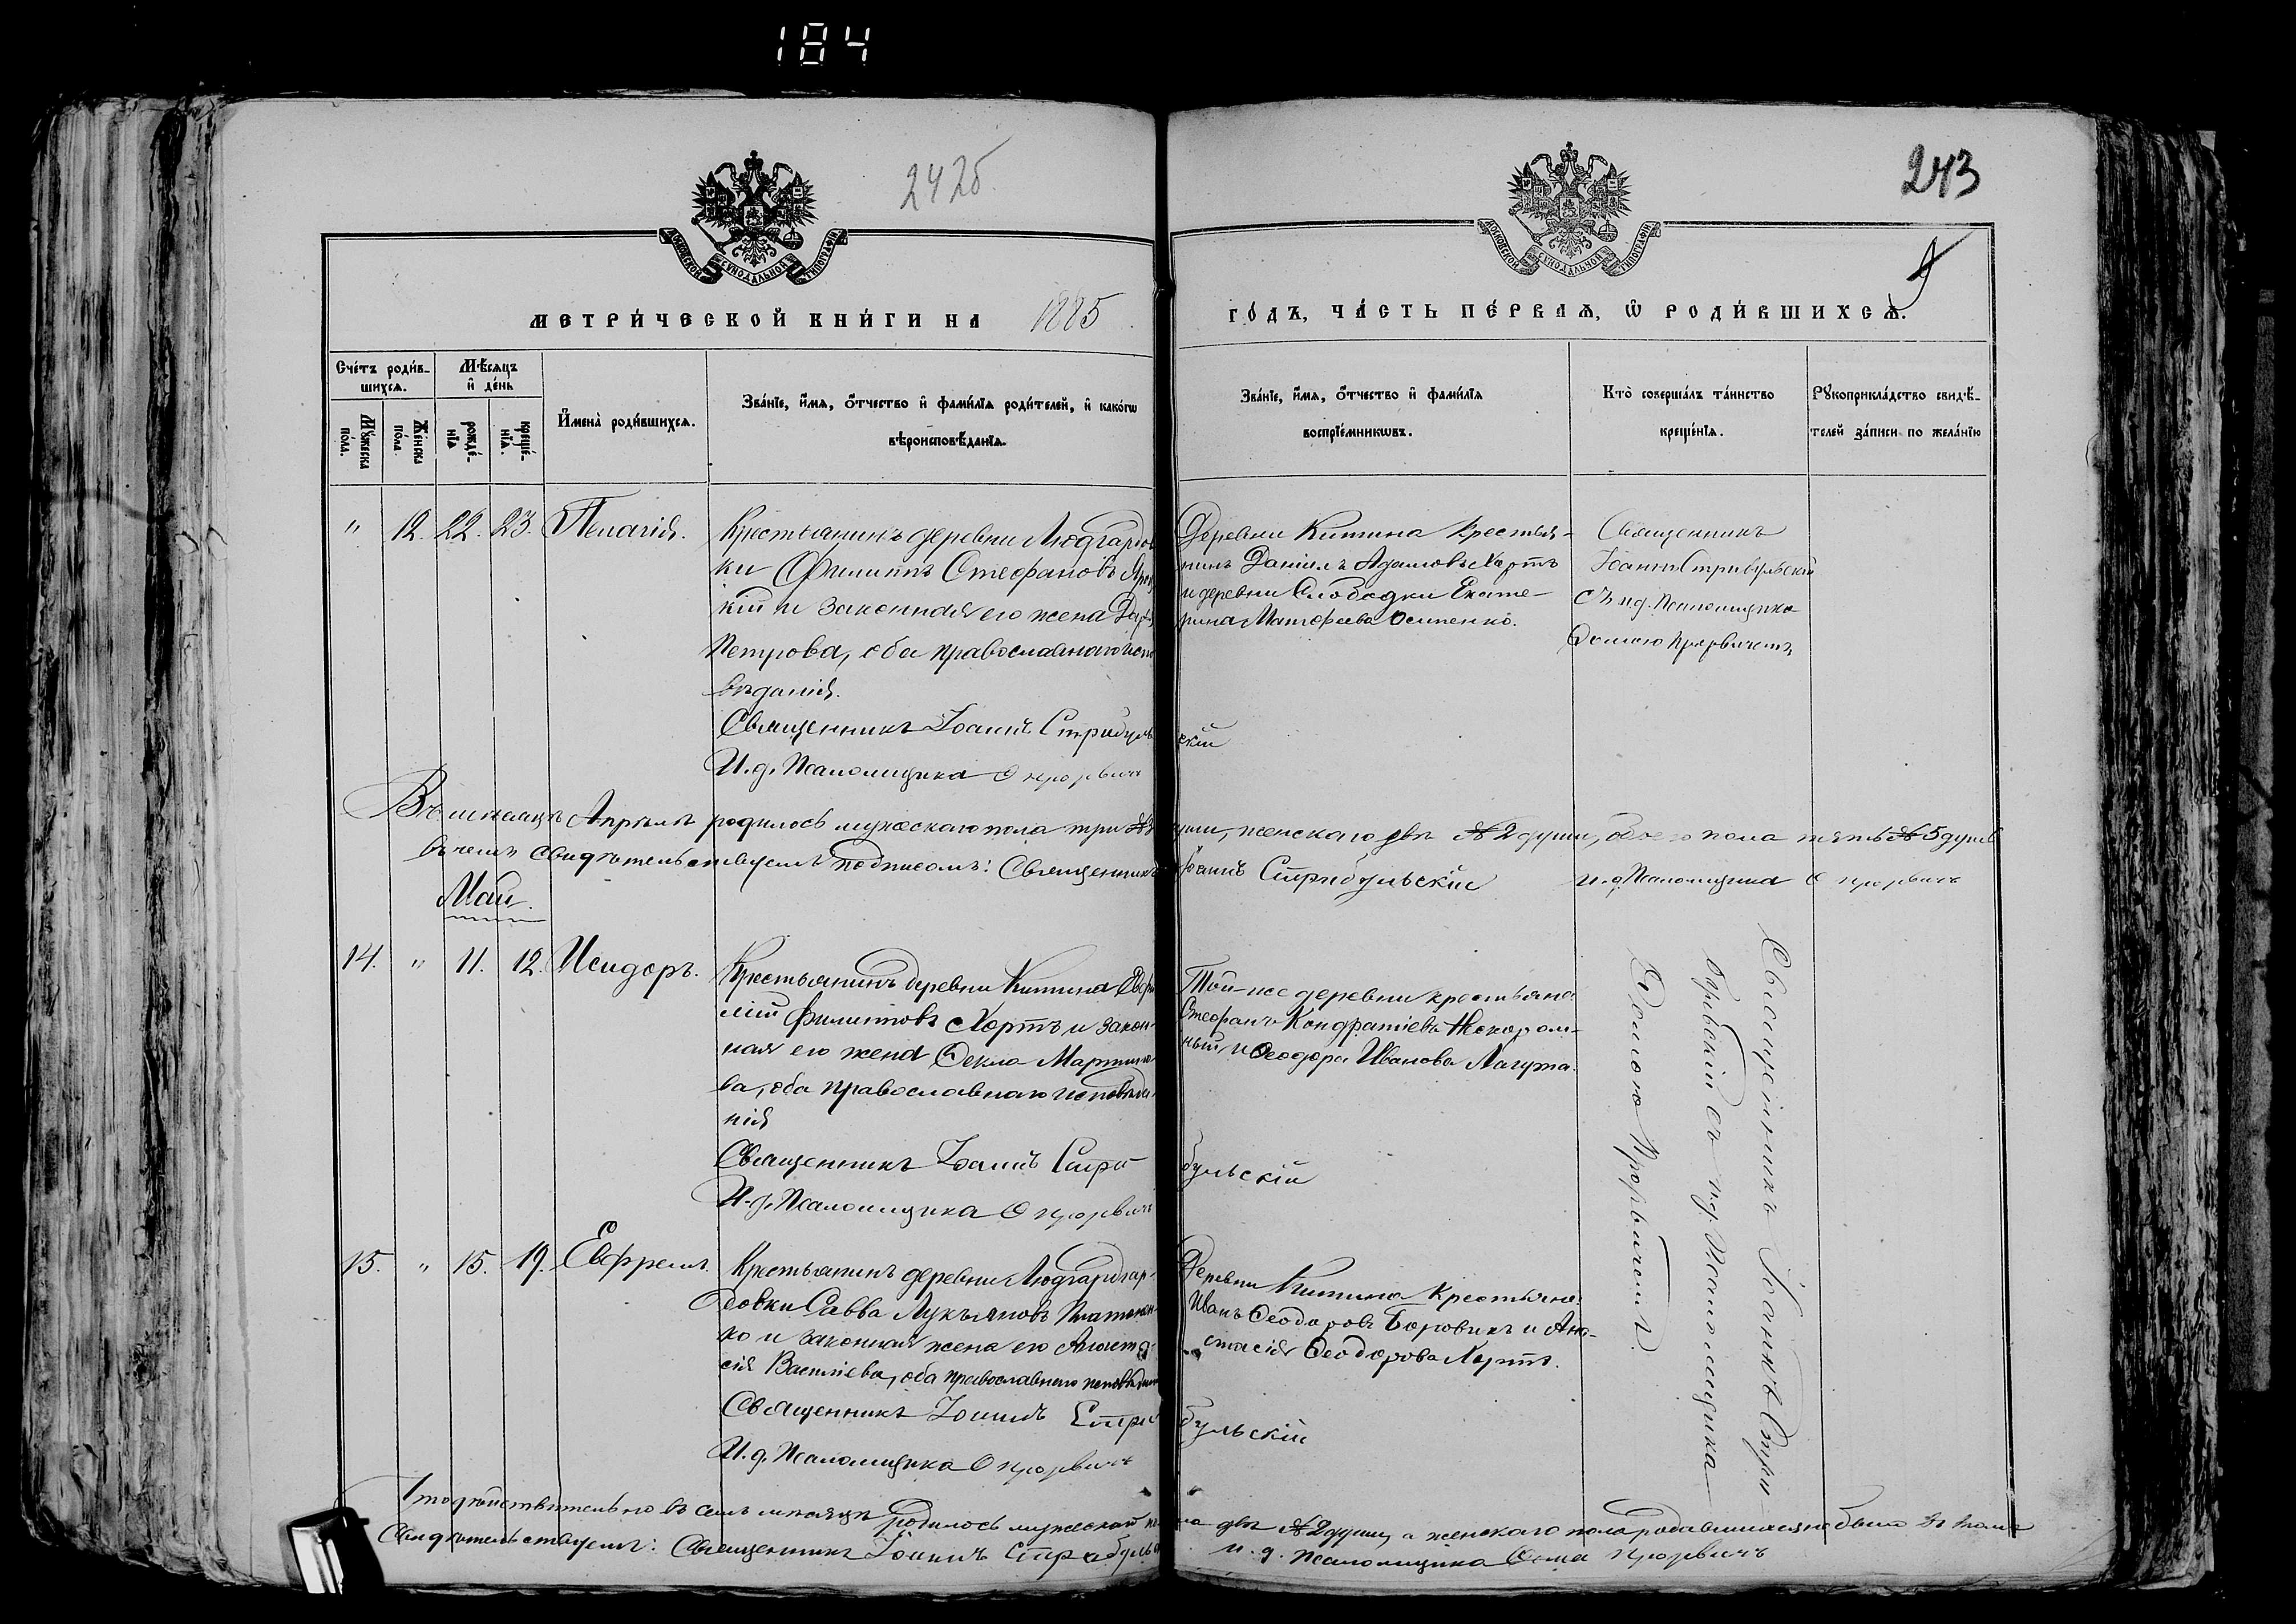 184
242б
243
9
МОСКОВСКОЙ СѴНОДАЛЬНОЙ ТИПОГРАФІИ
МОСКОВСКОЙ СѴНОДАЛЬНОЙ ТИПОГРАФІИ
МЕТРИ́ЧЕСКОЙ КНИ́ГИ НА 1885
ГО́ДЪ, ЧА́СТЬ ПЕ́РВАѦ, Ѽ РОДИ́ВШИХСѦ.
Счетъ роди́в-
шихсѧ.
Мꙋжеска по́ла.
Же́нска по́ла
Мѣ́сѧцъ
и҆ де́нь
рожде́-
нїѧ
креще́-
нїѧ.
И҆мена̀ роди́вшихсѧ.
Зва́нїе, и҆́мѧ, ѻ҆́тчество и҆ фами́лїѧ роди́телей, и҆ како́гѡ
вѣроисповѣ́данїѧ.
Зва́нїе, и҆́мѧ, ѻ҆́тчество и҆ фами́лїѧ
воспрїе́мникѡвъ.
Кто̀ соверша́лъ та́инство
креще́нїѧ.
Рꙋкоприкла́дство свидѣ́-
телей за́писи по жела́нїю
" 12. 22. 23. Пелагія.
Крестьянинъ деревни Людгардов
ки Филиппъ Стефановъ
кій и законная его жена Дар
Петрова, оба православнаго испо
вѣданія.
Священникъ Іоаннъ Стрибуль
скій
И. д. Псаломщика Ѳ Прорвичъ
Деревни Китина Крестья-
нинъ Даніилъ Адамовъ Хортъ
и деревни Слободки Екате-
рина Матѳеева Осипенко.
Священникъ
Іоаннъ Стрибульскій
съ и. д. Псаломщика
Ѳомою Прорвичемъ
Въ мѣсяцѣ Апрѣлѣ родилось мужескаго пола три № 3 души, женскаго двѣ № 2 души, обоего пола пять № 5 душъ
въ чемъ свидѣтельствуемъ подписомъ: Священникъ Іоаннъ Стрибульскій И. д. Псаломщика Ѳ Прорвичъ
Май.
14. " 11. 12. Исидоръ.
Крестьянинъ деревни Китина Евфи
мій Филипповъ Хортъ и закон-
ная его жена Ѳекла Мартино
ва, оба православнаго исповѣда
нія
Священникъ Іоаннъ Стри
бульскій
И. д. Псаломщика Ѳ Прорвичъ
Той-же деревни крестьяне
Стефанъ Кондратіевъ Нескором-
ный, и Ѳеодора Иванова Лагута.
Священникъ Іоаннъ Стри-
бульскій съ и. д. Псаломщика
Ѳомою Прорвичемъ.
15. " 15. 19. Евфремъ.
Крестьянинъ деревни Людгардгар-
довки Савва Лукьяновъ Платонен
ко и законная жена его Анаста
сія Василіева, оба православнаго исповѣдан
Священникъ Іоаннъ Стри
бульскій
И. д. Псаломщика Ѳ Прорвичъ
Деревни Китина Крестьяне
Иванъ Ѳеодоровъ Боровикъ и Ана-
стасія Ѳеодорова Хортъ.
Что дѣйствительно въ семъ мѣсяцѣ родилось мужескаго пола двѣ № 2 души, а женскаго пола родившихся не было въ томъ
Свидѣтельствуемъ: Священникъ Іоаннъ Стрибульс И. д. Псаломщика Ѳома Прорвичъ